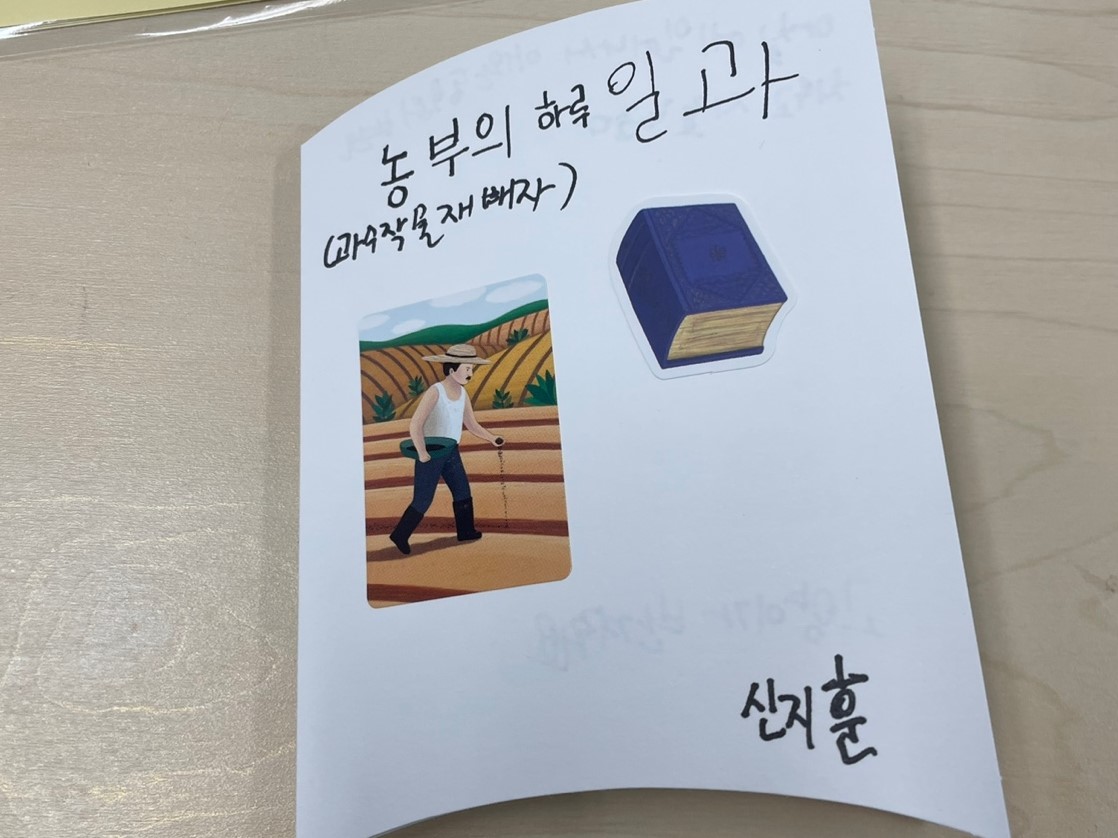 농부의 하루 일과
(과수작물재배자)
신지훈